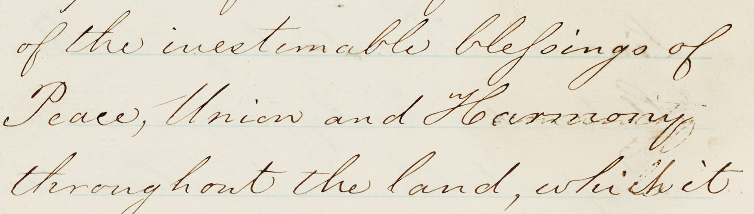 of the inestimable bleſsings of
Peace, Union and Harmony
throughout the land, which it